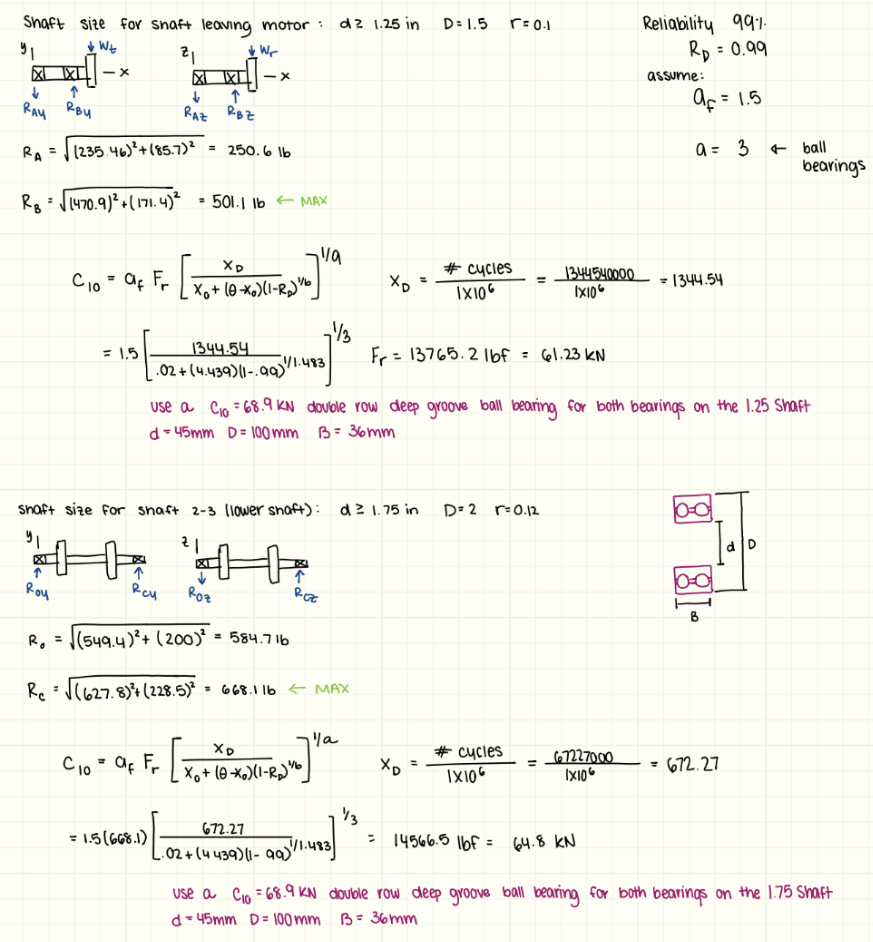 Shaft size for shaft leaving motor : d ≥ 1.25 in D = 1.5 r = 0.1
Reliability 99%
R_D = 0.99
assume:
a_f = 1.5
a = 3 ← ball bearings
y W_t x
R_Ay R_By
z W_r x
R_Az R_Bz
R_A = √((235.46)² + (85.7)²) = 250.6 lb
R_B = √((470.9)² + (171.4)²) = 501.1 lb ← MAX
C_10 = a_f F_r [X_D / (X_0 + (θ - X_0)(1-R_D)^(1/b))]^(1/a) X_D = # cycles / 1X10⁶ = 1344540000 / 1X10⁶ = 1344.54
= 1.5 [1344.54 / (.02 + (4.439)(1-.99)^(1/1.483))]^(1/3) F_r = 13765.2 lbf = 61.23 kN
use a C_10 = 68.9 kN double row deep groove ball bearing for both bearings on the 1.25 shaft
d = 45mm D = 100mm B = 36mm
shaft size for shaft 2-3 (lower shaft): d ≥ 1.75 in D = 2 r = 0.12
y
R_Oy R_Cy
z
R_Oz R_Cz
d D
B
R_o = √((549.4)² + (200)²) = 584.7 lb
R_c = √((627.8)² + (228.5)²) = 668.1 lb ← MAX
C_10 = a_f F_r [X_D / (X_0 + (θ - X_0)(1-R_D)^(1/b))]^(1/a) X_D = # cycles / 1X10⁶ = 67227000 / 1X10⁶ = 672.27
= 1.5(668.1) [672.27 / (.02 + (4.439)(1-.99)^(1/1.483))]^(1/3) = 14566.5 lbf = 64.8 kN
use a C_10 = 68.9 kN double row deep groove ball bearing for both bearings on the 1.75 shaft
d = 45mm D = 100mm B = 36mm